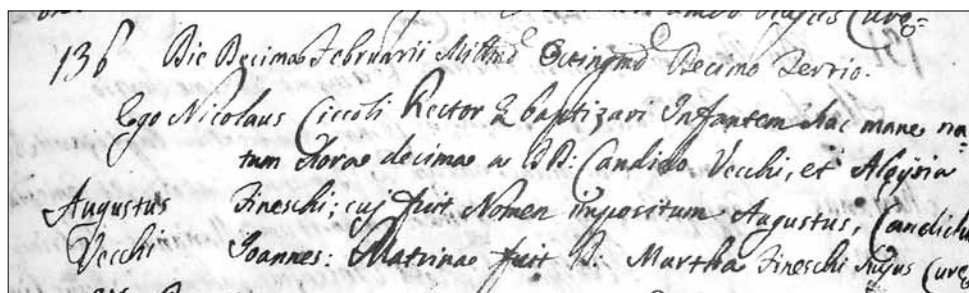 hujus Cure=
136 Die Decima Februarii Mill.mo Octing.mo Decimo Terzio.
Ego Nicolaus Ciccoli Rector & baptizavi Infantem hac mane na=
tum hora decima a DD: Candido Vecchi, et Aloysia
Augustus Fineschi; cuj fuit Nomen impositum Augustus, Candidus
Vecchi Joannes: Matrina fuit D: Martha Fineschi hujus Cure